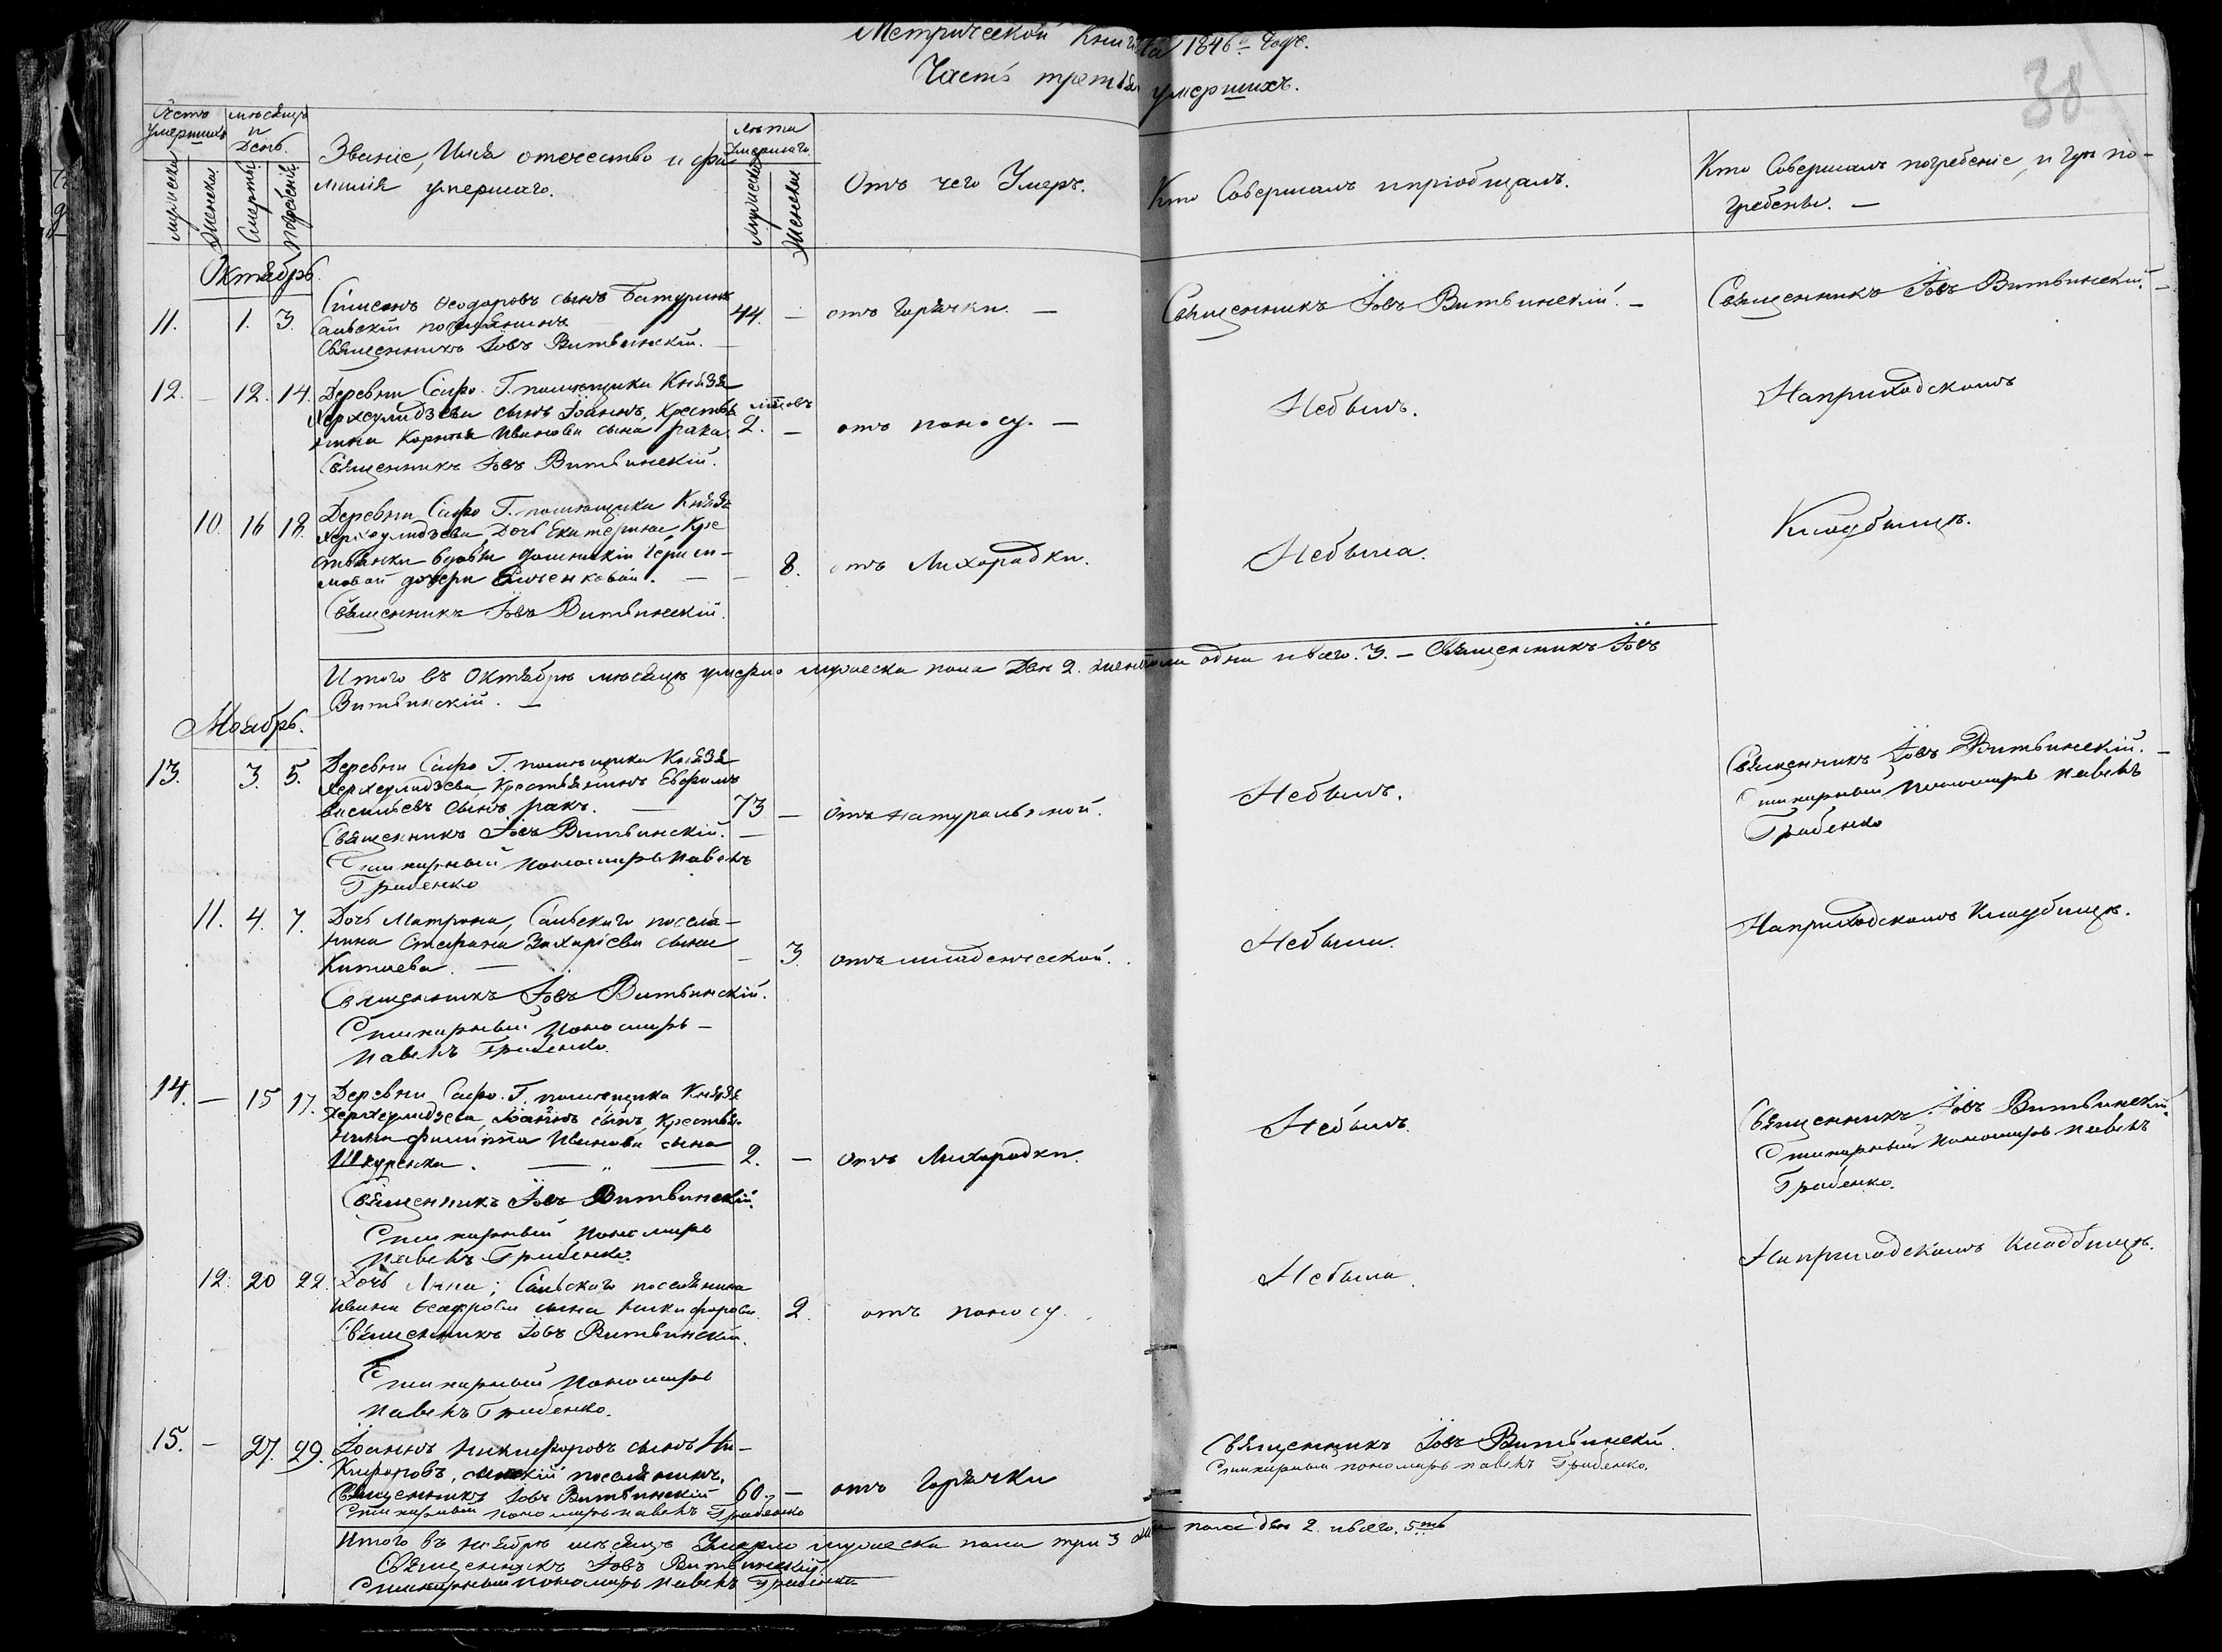 Метрической Книги На 1846й Годъ.
Часть третья умершихъ.
38
Счетъ умершихъ
мѣсяцъ и День.
Званіе, Имя отечество и фа
милія умершаго.
лѣта Умершаго.
Отъ чего Умеръ.
Кто Совершалъ и пріобщалъ.
Кто Совершалъ погребеніе, и гдѣ по-
гребены. —
мужеска
женска
Смерти
погребенія
мужеска
женска
Октябрь.
11. 1. 3.
Симеонъ Ѳеодоровъ сынъ Батуринъ
Сельскій поселянинъ
Священникъ Іовъ Витвинскій. —
44. — отъ Горячки. —
Священникъ Іовъ Витвинскій. —
Священникъ Іовъ Витвинскій. —
12. — 12. 14.
Деревни Сафо Г. помещика Князя
Херхеулидзева сынъ Іоаннъ, крестья
нина Корнія Иванова сына рака.
Священникъ Іовъ Витвинскій.
2. — отъ поносу. —
Небылъ.
Наприходскомъ
10. 16 18.
Деревни Сафо Г. помещика Князя
Херхеулидзева, Дочь Екатерина Кре
стьянки вдовы
мовой дочери
Священникъ Іовъ Витвинскій.
— 8. отъ Лихорадки.
Небыла.
Кладбищѣ.
Итого въ Октябрѣ мѣсяцѣ умерло мужеска пола Два 2. женска одна и всего. 3. — Священникъ Іовъ
Витвинскій. —
Ноябрь.
13. 3. 5.
Деревни Сафо Г. помещика Князя
Херхеулидзева, Крестьянинъ Евфимъ
Васильевъ сынъ ракъ. —
Священникъ Іовъ Витвинскій. —
пономарь Павелъ
Грибенко
73 — Отъ натуральной.
Небылъ.
Священникъ Іовъ Витвинскій. —
пономарь Павелъ
Грибенко
11. 4. 7.
Дочь Матрона, Сельскаго поселя-
нина Стефана Захаріева сына
Китаева. —
Священникъ Іовъ Витвинскій.
пономарь —
Павелъ Грибенко.
— 3. отъ младенческой.
Небыла.
Наприходскомъ Кладбищѣ.
14. — 15 17.
Деревни Сафо. Г. помещика Князя
Херхеулидзева, Іоаннъ сынъ, крестья-
нина филиппа Иванова сына
Шкуренка. — " —
Священникъ Іовъ Витвинскій.
пономарь
Павелъ Грибенко.
2. — Отъ Лихорадки.
Небылъ.
Священникъ Іовъ Витвинскій
пономарь Павелъ
Грибенко.
12. 20 22.
Дочь Анна; Сельскаго поселянина
Ивана сына Никифорова
Священникъ Іовъ Витвинскій.
пономарь
Павелъ Грибенко.
2. отъ поносу.
Небыла.
Наприходскомъ Кладбищѣ.
15. — 27. 29.
Іоаннъ Никифоровъ сынъ Ни-
кифоровъ, сельскій поселянинъ.
Священникъ Іовъ Витвинскій
пономарь Павелъ Грибенко
60. — отъ Горячки
Священникъ Іовъ Витвинскій.
пономарь Павелъ Грибенко.
Итого въ ноябрѣ мѣсяцѣ Умерло мужеска пола три 3 пола две 2. и всего. 5ть
Священникъ Іовъ Витвинскій
пономарь Павелъ Грибенко